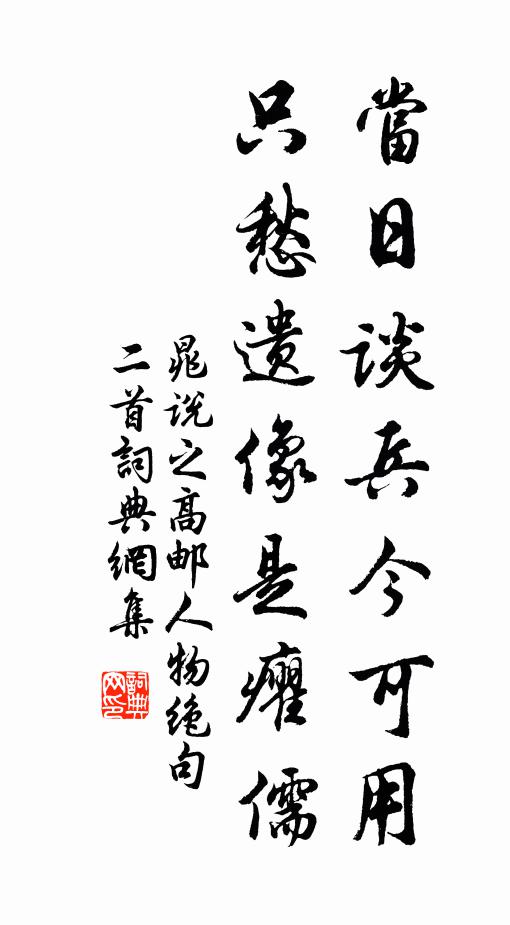 當日談兵今可用
只愁遺像是癯儒
晁說之高邮人物絶句
二首詞典網集
詞典
网印